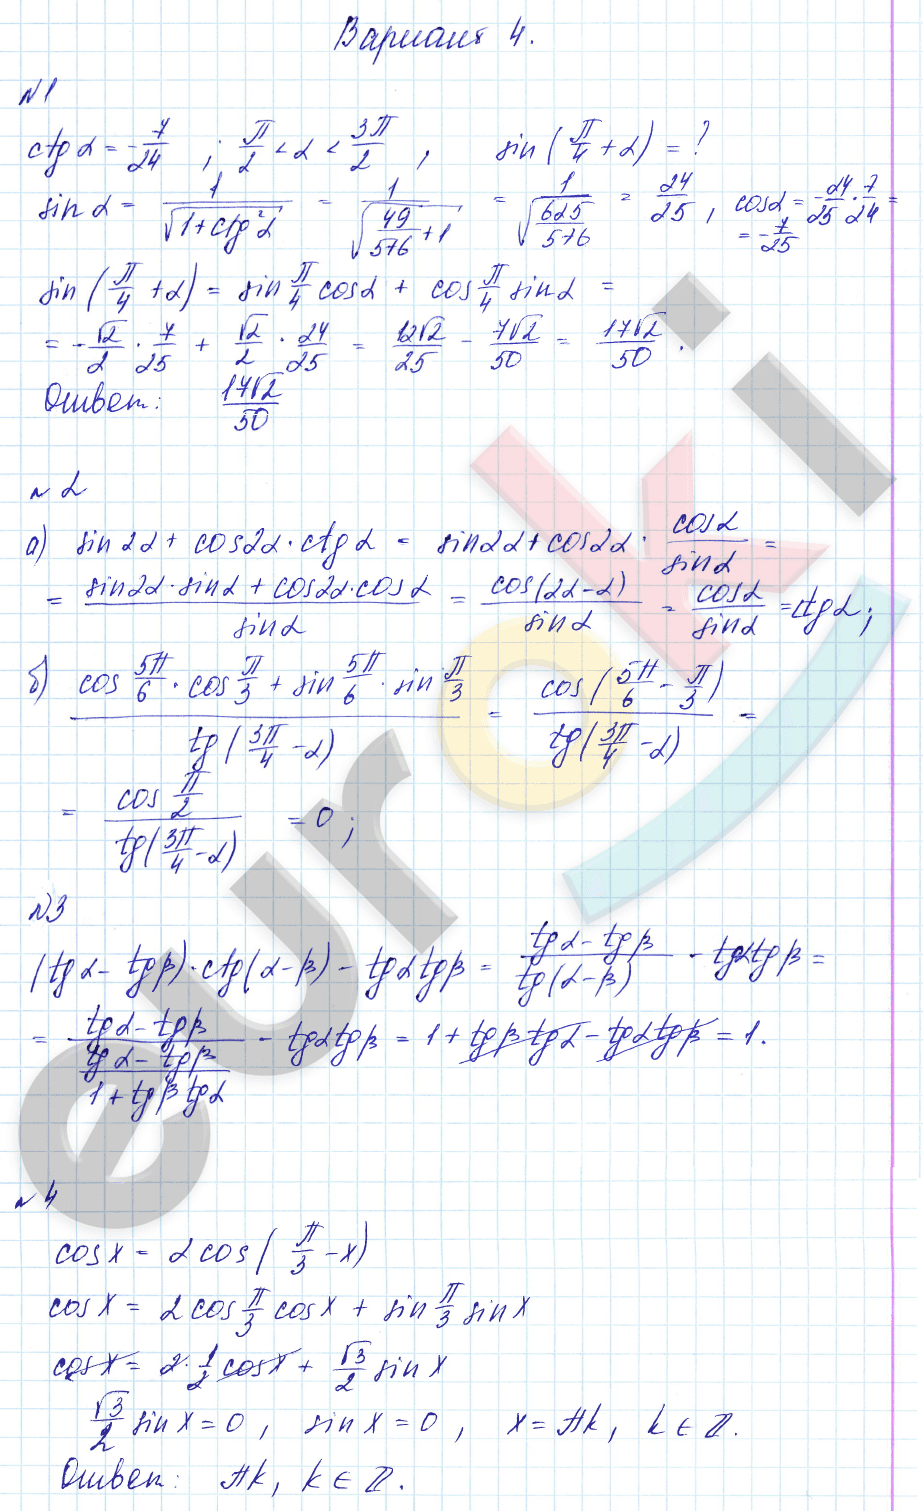 Вариант 4.
№1
ctg α = -7/24 ; π/2 < α < 3π/2 , sin(π/4 + α) = ?
sin α = 1/√(1+ctg²α) = 1/√(49/576 + 1) = 1/√(625/576) = 24/25 , cos α = -24/25 · 7/24 =
= -7/25
sin(π/4 + α) = sin π/4 cos α + cos π/4 sin α =
= -√2/2 · 7/25 + √2/2 · 24/25 = 12√2/25 - 7√2/50 = 17√2/50 .
Ответ: 17√2/50
№2
а) sin 2α + cos 2α · ctg α = sin 2α + cos 2α · cos α/sin α =
= (sin 2α · sin α + cos 2α · cos α)/sin α = cos(2α - α)/sin α = cos α/sin α = ctg α ;
б) (cos 5π/6 · cos π/3 + sin 5π/6 · sin π/3)/tg(3π/4 - α) = cos(5π/6 - π/3)/tg(3π/4 - α) =
= cos π/2 / tg(3π/4 - α) = 0 ;
№3
(tg α - tg β) · ctg(α - β) - tg α tg β = (tg α - tg β)/tg(α - β) - tg α tg β =
= (tg α - tg β)/((tg α - tg β)/(1 + tg β tg α)) - tg α tg β = 1 + tg β tg α - tg α tg β = 1.
№4
cos x = 2 cos(π/3 - x)
cos x = 2 cos π/3 cos x + sin π/3 sin x
cos x = 2 · 1/2 cos x + √3/2 sin x
√3/2 sin x = 0 , sin x = 0 , x = πk, k ∈ ℤ.
Ответ: πk, k ∈ ℤ.
euroki